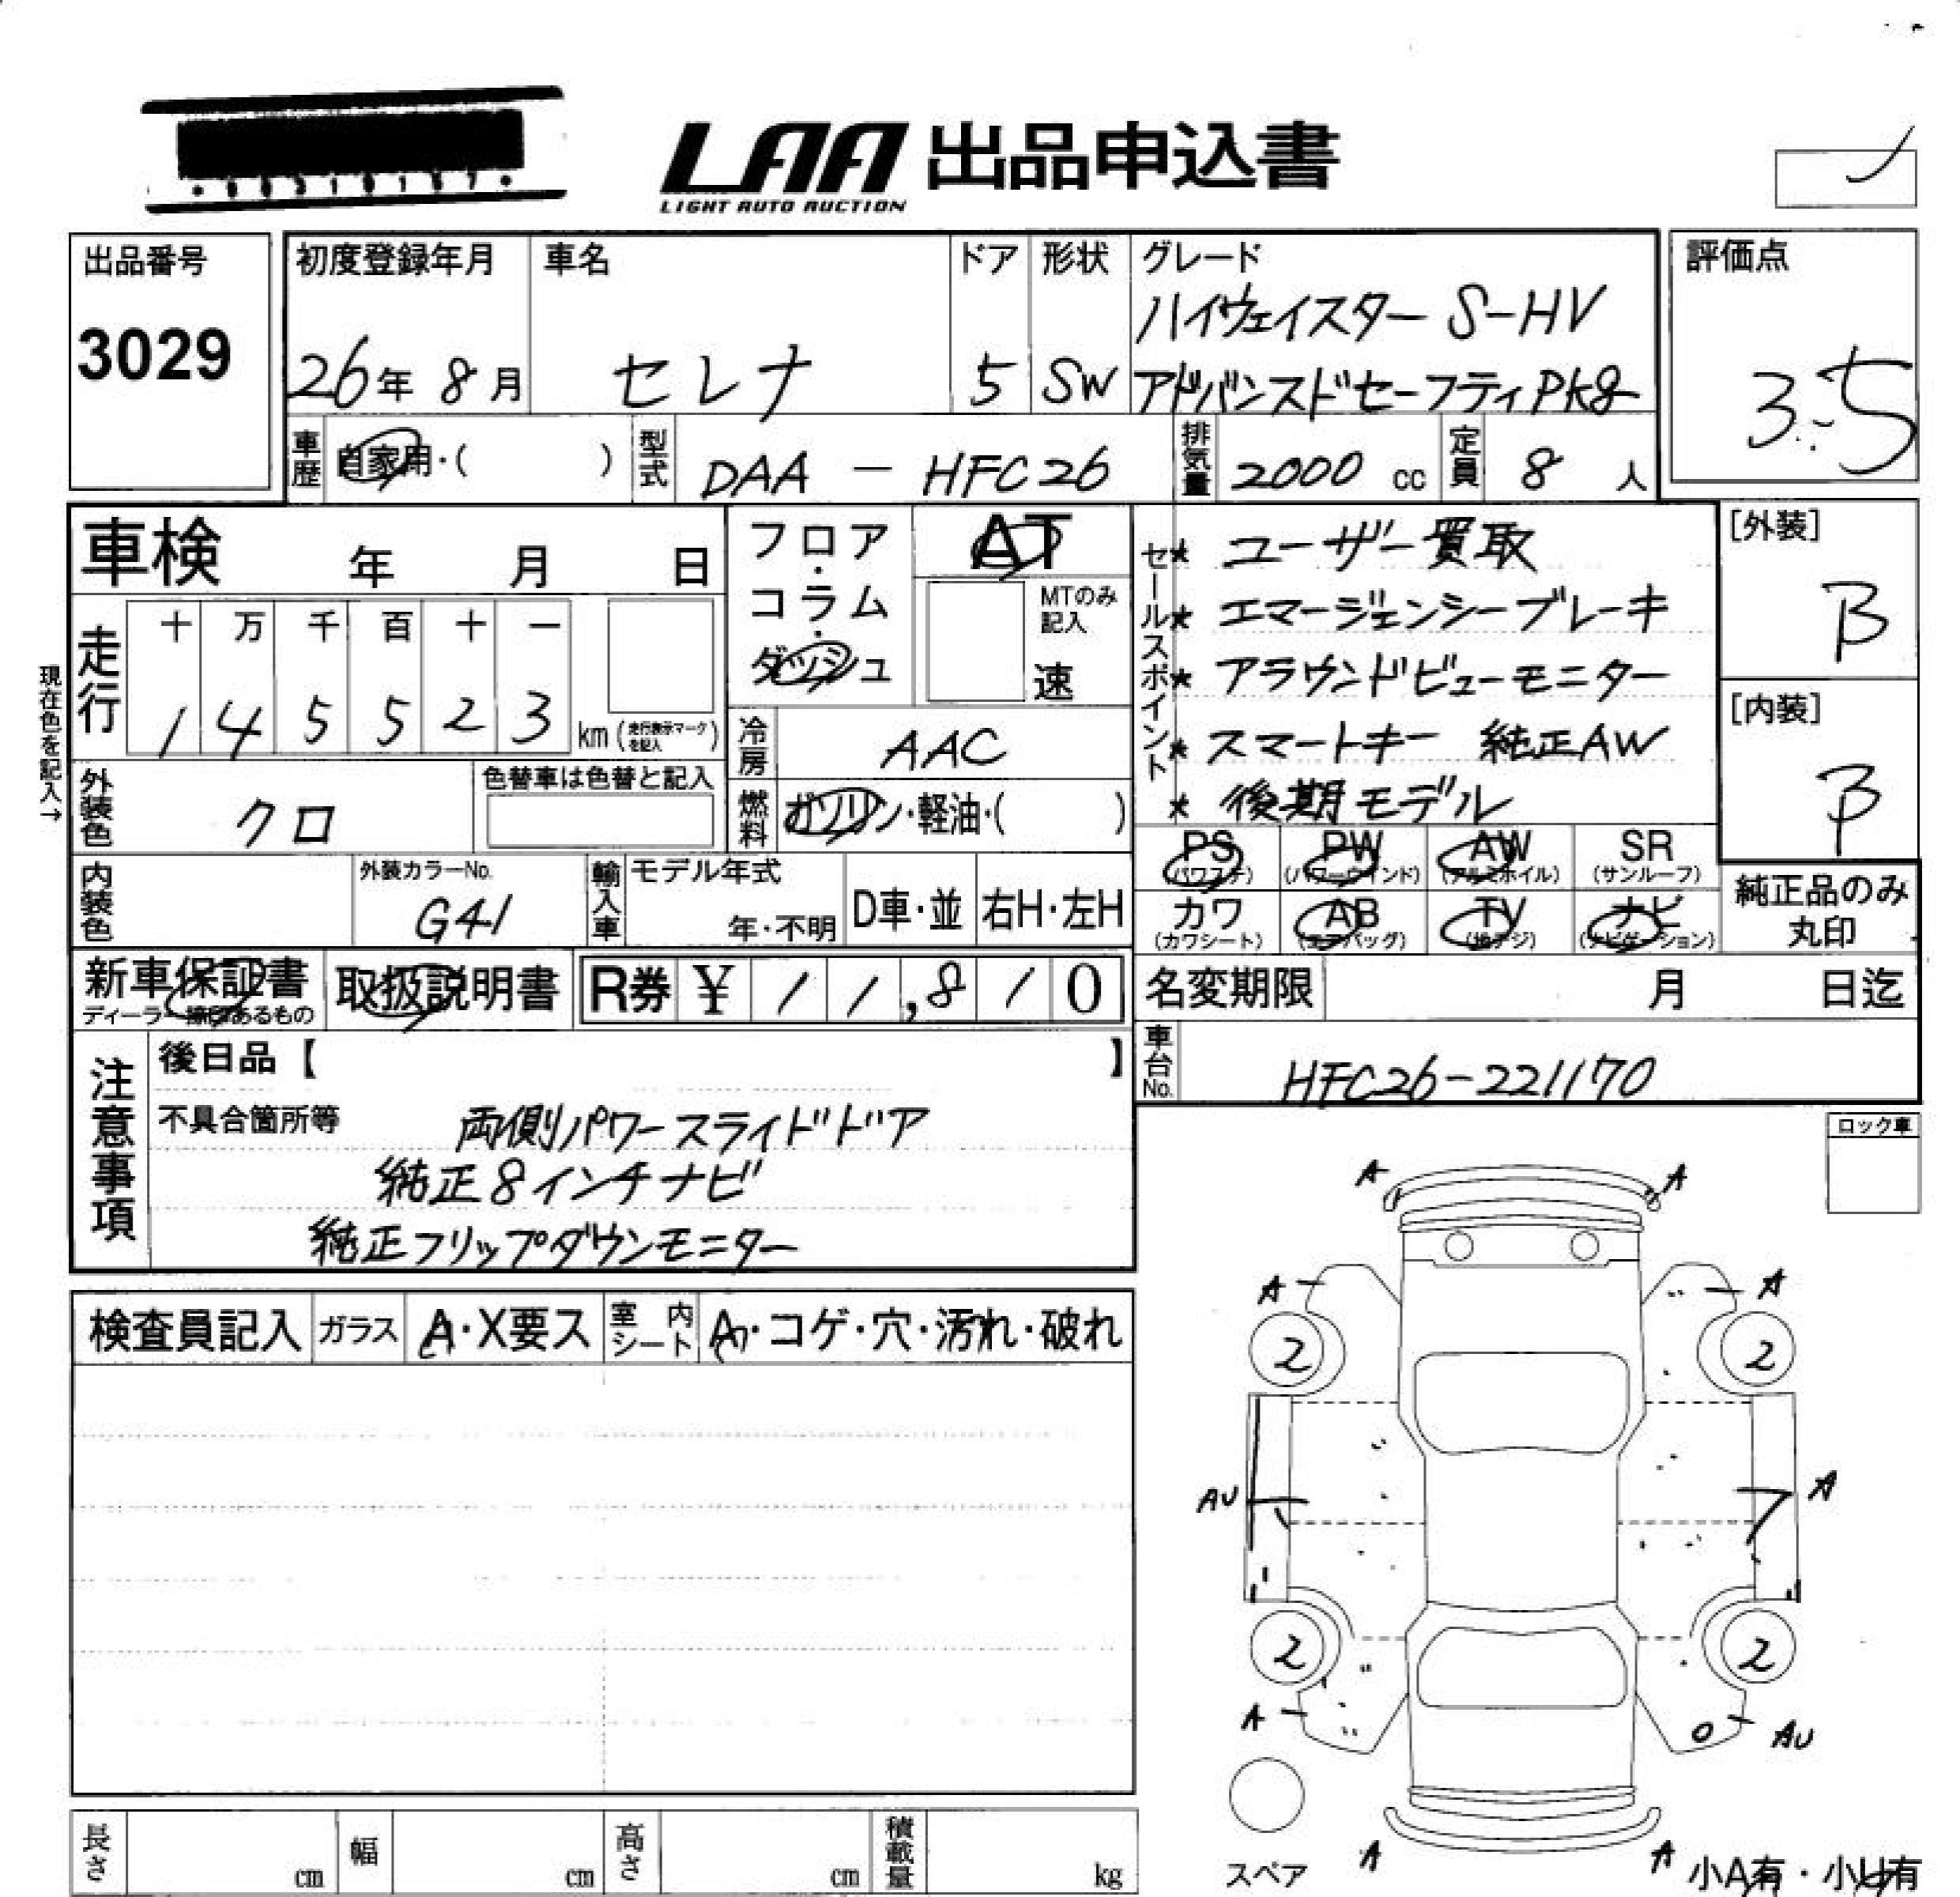 LAA 出品申込書
LIGHT AUTO AUCTION
出品番号
3029
初度登録年月
26年 8月
車名
セレナ
ドア
5
形状
SW
グレード
ハイウェイスター S-HV
アドバンスドセーフティPkg
評価点
3.5
車歴
自家用・( )
型式
DAA - HFC26
排気量
2000 cc
定員
8 人
車検 年 月 日
フロア・コラム・ダッシュ
AT
MTのみ記入
速
セールスポイント
* ユーザー買取
* エマージェンシーブレーキ
* アラウンドビューモニター
* スマートキー 純正AW
* 後期モデル
[外装]
B
[内装]
B
現在色を記入→
走行
十 万 千 百 十 一
1 4 5 5 2 3 km (走行表示マークを記入)
冷房
AAC
外装色
クロ
色替車は色替と記入
燃料
ガソリン・軽油・( )
内装色
外装カラーNo.
G41
輸入車
モデル年式
年・不明
D車・並
右H・左H
PS (パワステ)
PW (パワーウインド)
AW (アルミホイル)
SR (サンルーフ)
カワ (カワシート)
AB (エアバッグ)
TV (地デジ)
ナビ (ナビゲーション)
純正品のみ丸印
新車保証書
ディーラー捺印あるもの
取扱説明書
R券 ¥ 11,810
名変期限 月 日迄
車台No.
HFC26-221170
注意事項
後日品【 】
不具合箇所等 両側パワースライドドア
純正8インチナビ
純正フリップダウンモニター
ロック車
検査員記入
ガラス
A・X要ス
室内シート
A・コゲ・穴・汚れ・破れ
A A
A A
2 2
AU A
2 2
A AU
スペア
A A
小A有・小U有
長さ cm
幅 cm
高さ cm
積載量 kg